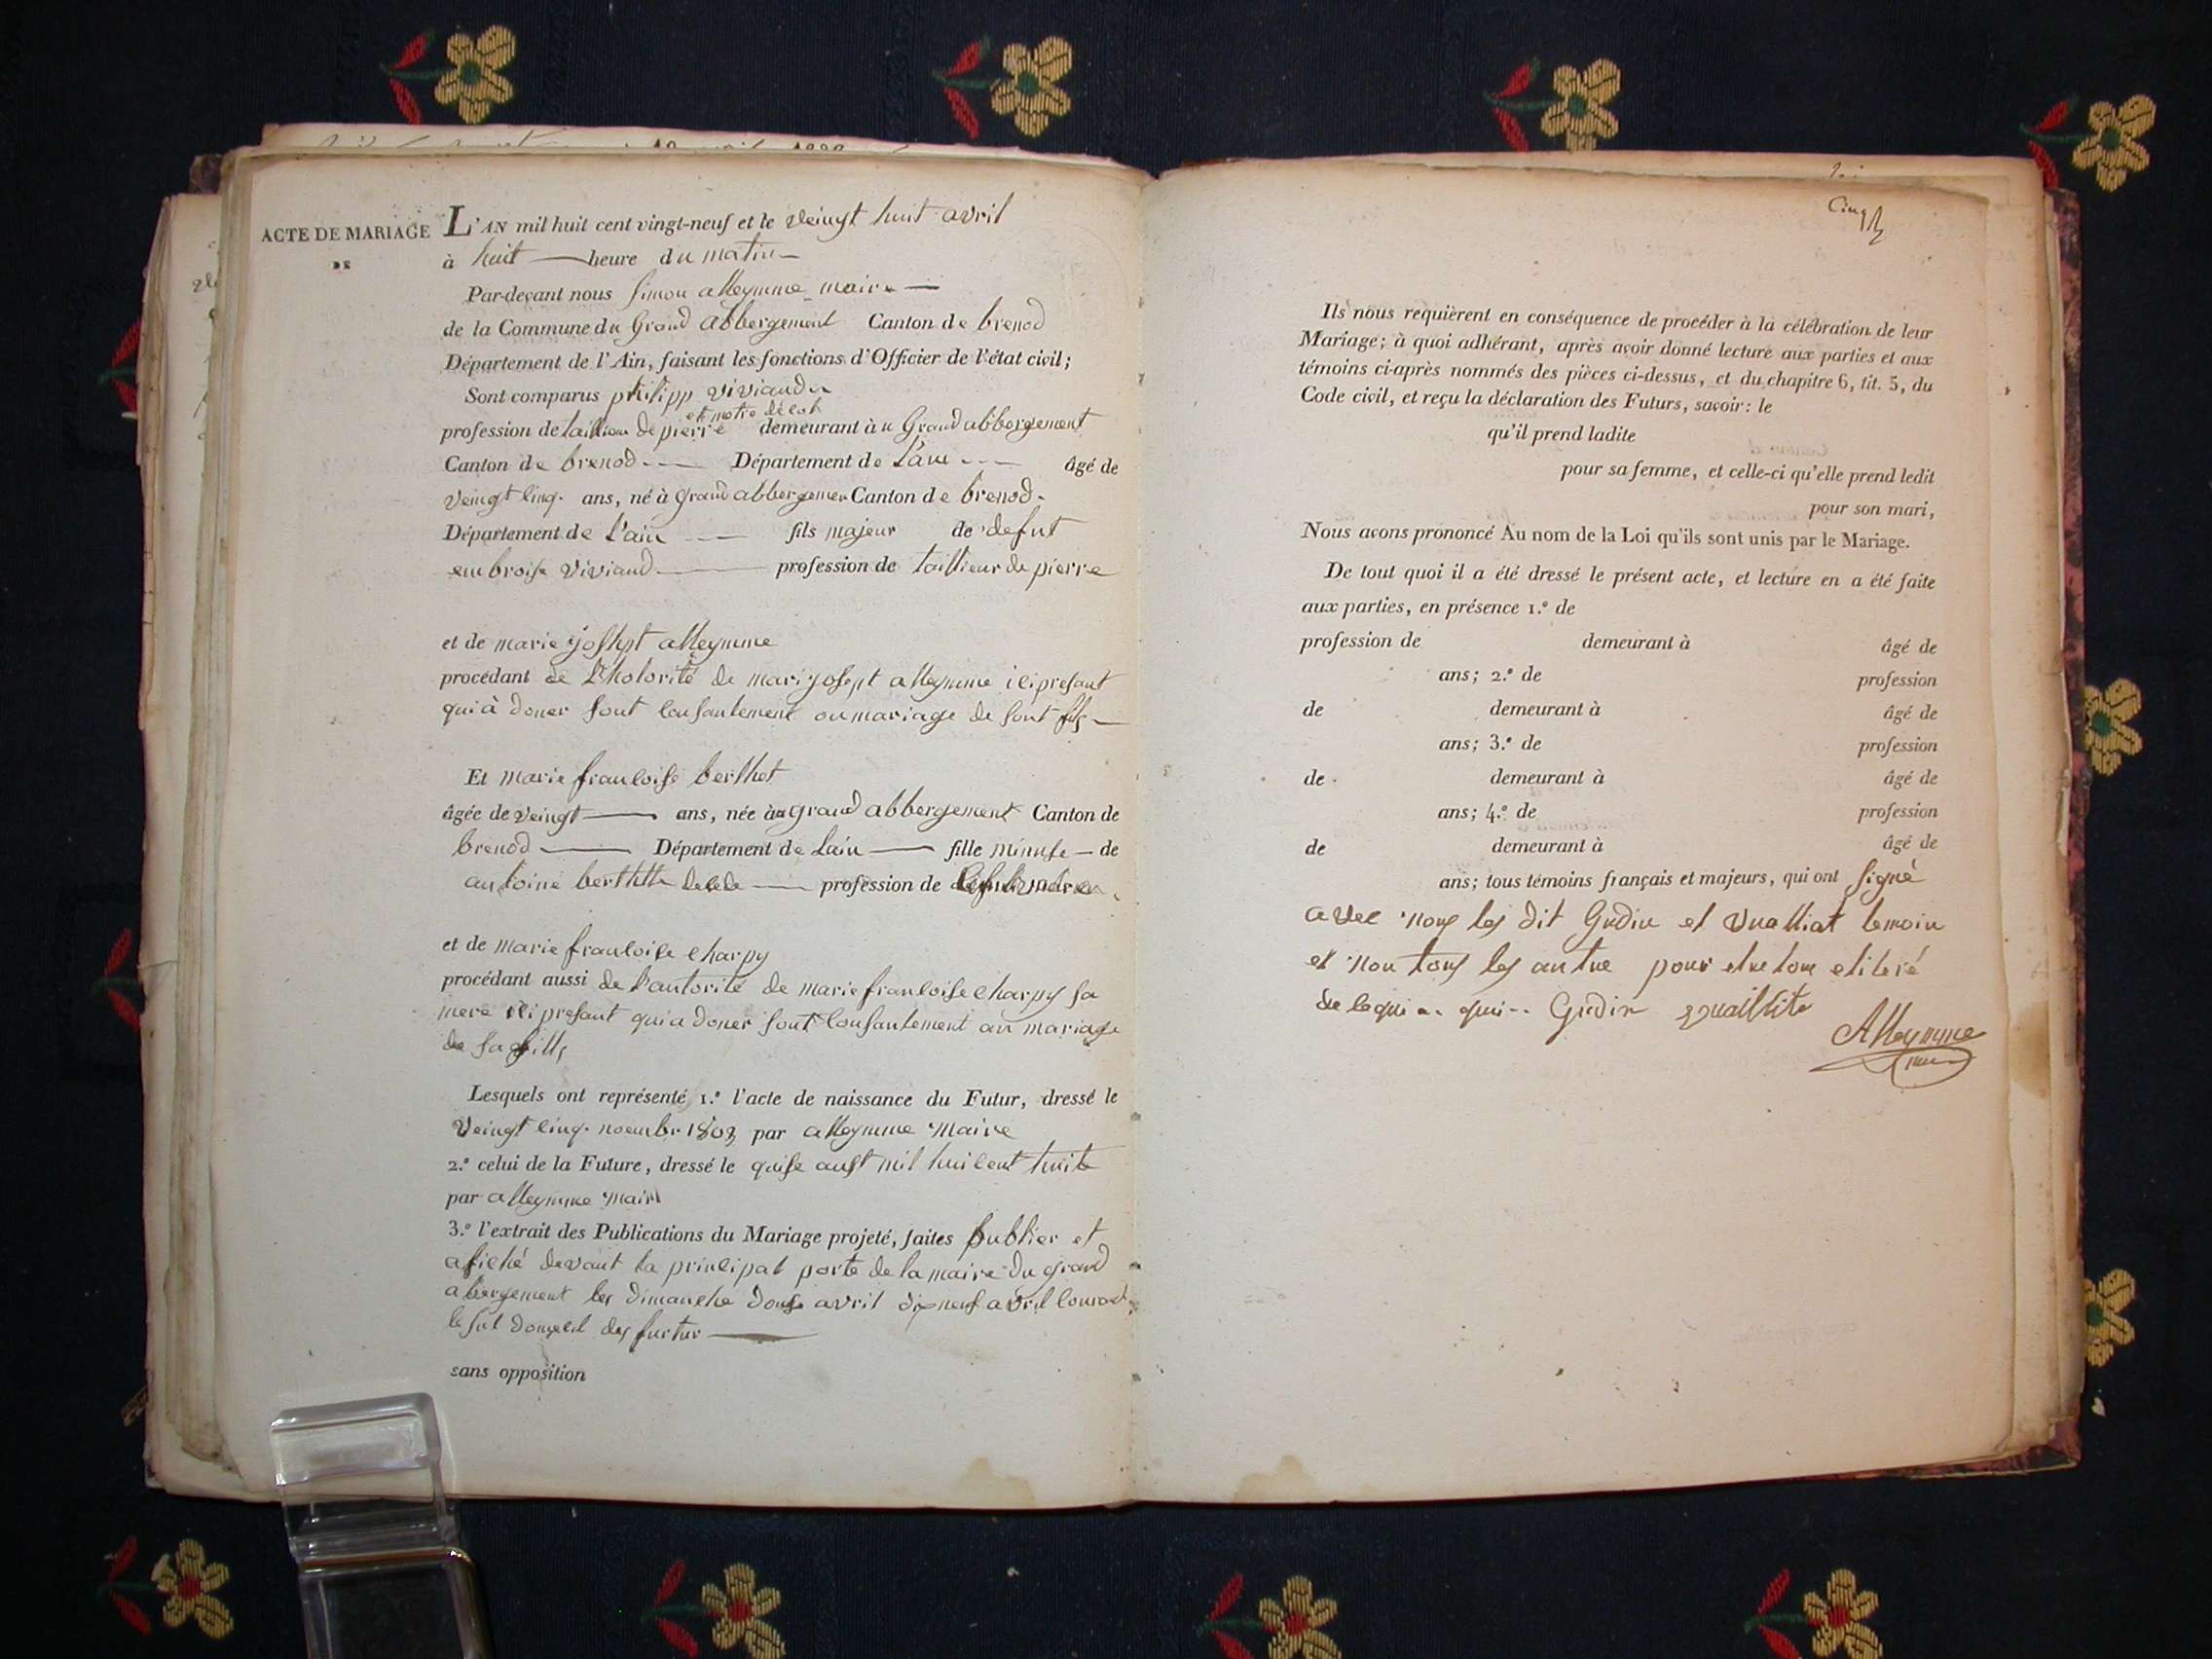 ACTE DE MARIAGE
DE
L'AN mil huit cent vingt-neuf et le veingt huit avril
à huit heure du matin
Par-devant nous simon alleymme maire
de la Commune du Grand abbergement Canton de brenod
Département de l'Ain, faisant les fonctions d'Officier de l'état civil;
Sont comparus philipp viviand
profession de taillieur de pierre demeurant à u Grand abbergement
Canton de brenod Département de l'ain âgé de
veingt cinq ans, né à grand abbergemen Canton de brenod
Département de l'ain fils majeur de defut
embroise viviand profession de taillieur de pierre
et de marie joshpt alleymme
procédant de de mari josept alleymme ici presant
qui à doner sont consantement ou mariage de sont fils
Et marie francoise berthet
âgée de veingt ans, née àu grand abbergement Canton de
brenod Département de lain fille minure de
antoine berthette profession de
et de marie francoise charpy
procédant aussi de l'autorité de marie francoise charpy sa
mere ici presant qui a doner sont consantement au mariage
de sa fille
Lesquels ont représenté 1.° l'acte de naissance du Futur, dressé le
veingt cinq noembr 1803 par alleymme maire
2.° celui de la Future, dressé le quise aust mil huit cent huite
par alleymme maire
3.° l'extrait des Publications du Mariage projeté, faites publier et
afiché devant la principal porte de la maire du grand
abergement les dimanche douse avril dixneuf avril
des furtur
sans opposition
Cinq
Ils nous requièrent en conséquence de procéder à la célébration de leur
Mariage; à quoi adhérant, après avoir donné lecture aux parties et aux
témoins ci-après nommés des pièces ci-dessus, et du chapitre 6, tit. 5, du
Code civil, et reçu la déclaration des Futurs, savoir: le
qu'il prend ladite
pour sa femme, et celle-ci qu'elle prend ledit
pour son mari,
Nous avons prononcé Au nom de la Loi qu'ils sont unis par le Mariage.
De tout quoi il a été dressé le présent acte, et lecture en a été faite
aux parties, en présence 1.° de
profession de demeurant à âgé de
ans; 2.° de profession
de demeurant à âgé de
ans; 3.° de profession
de demeurant à âgé de
ans; 4.° de profession
de demeurant à âgé de
ans; tous témoins français et majeurs, qui ont signé
avec nous les dit Gudin et vualliat temoin
et non tous les autre pour
Gudin
Alleymme